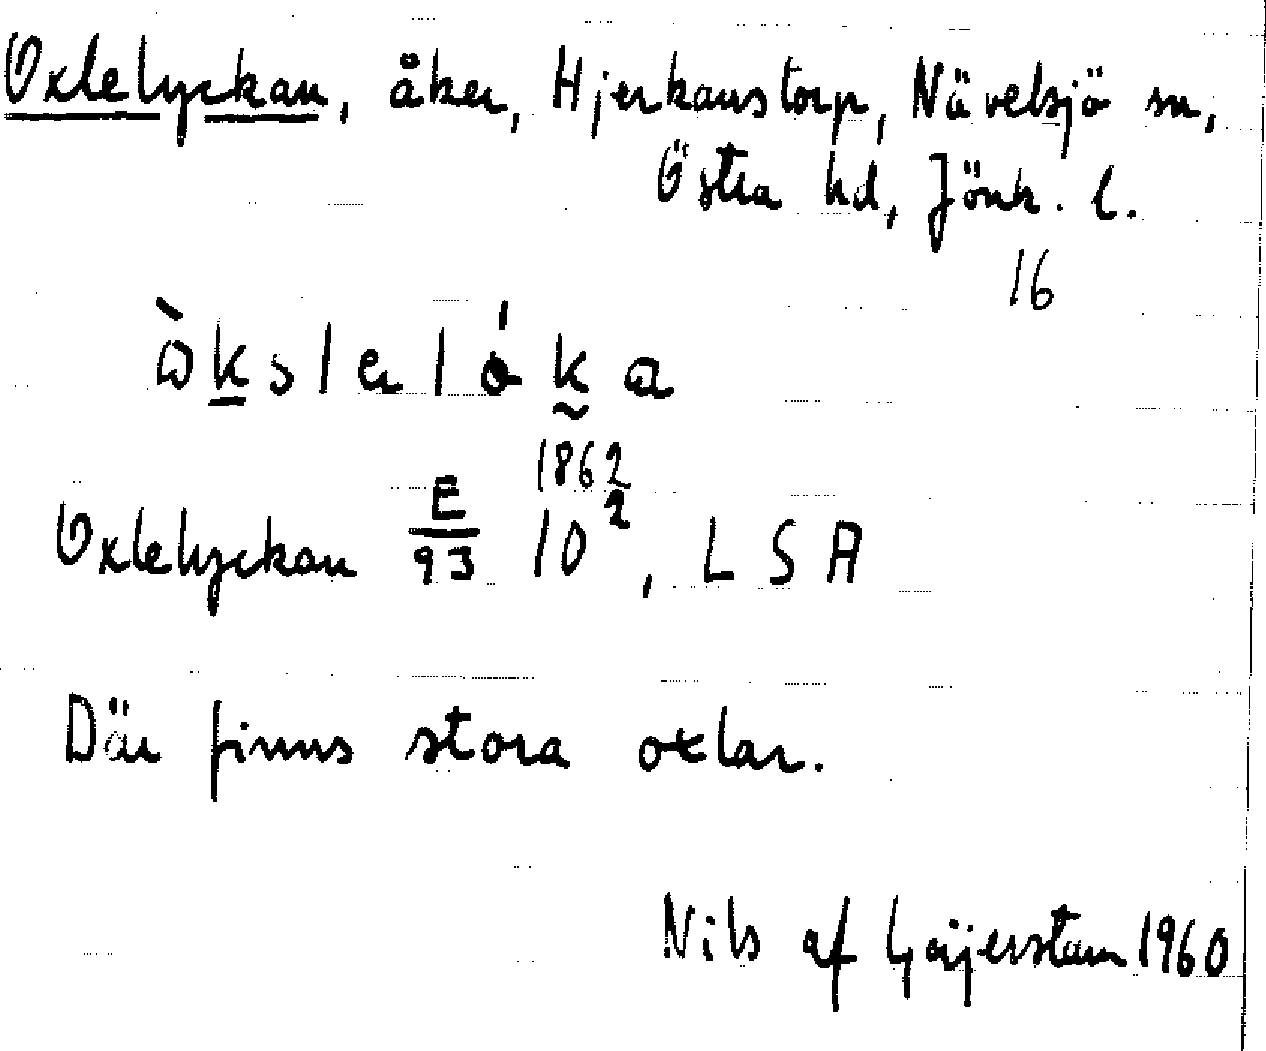 Oxlelyckan, åker, Hjerkanstorp, Nävelsjö sn,
Östra hd, Jönk. l.
16
òkslelóka
1862
Oxlelyckan E/93 10², LSA
Där finns stora oxlar.
Nils af Geijerstam 1960